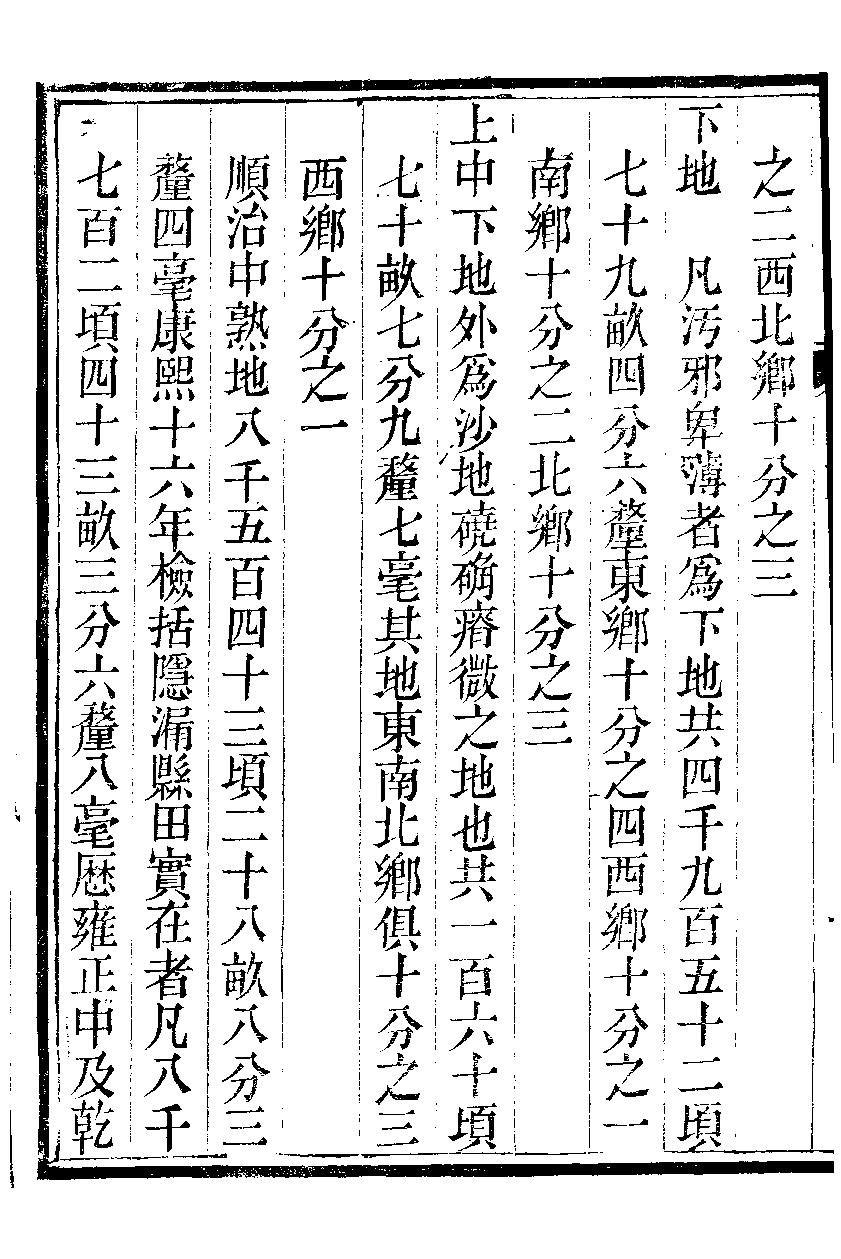 之二西北鄉十分之三
下地　凡汚邪卑薄者爲下地共四千九百五十二頃
七十九畝四分六釐東鄉十分之四西鄉十分之一
南鄉十分之二北鄉十分之三
上中下地外爲沙地磽确瘠微之地也共一百六十頃
七十畝七分九釐七毫其地東南北鄉俱十分之三
西鄉十分之一
順治中熟地八千五百四十三頃二十八畝八分三
釐四毫康熙十六年檢括隱漏縣田實在者凡八千
七百二頃四十三畝三分六釐八毫厯雍正中及乾